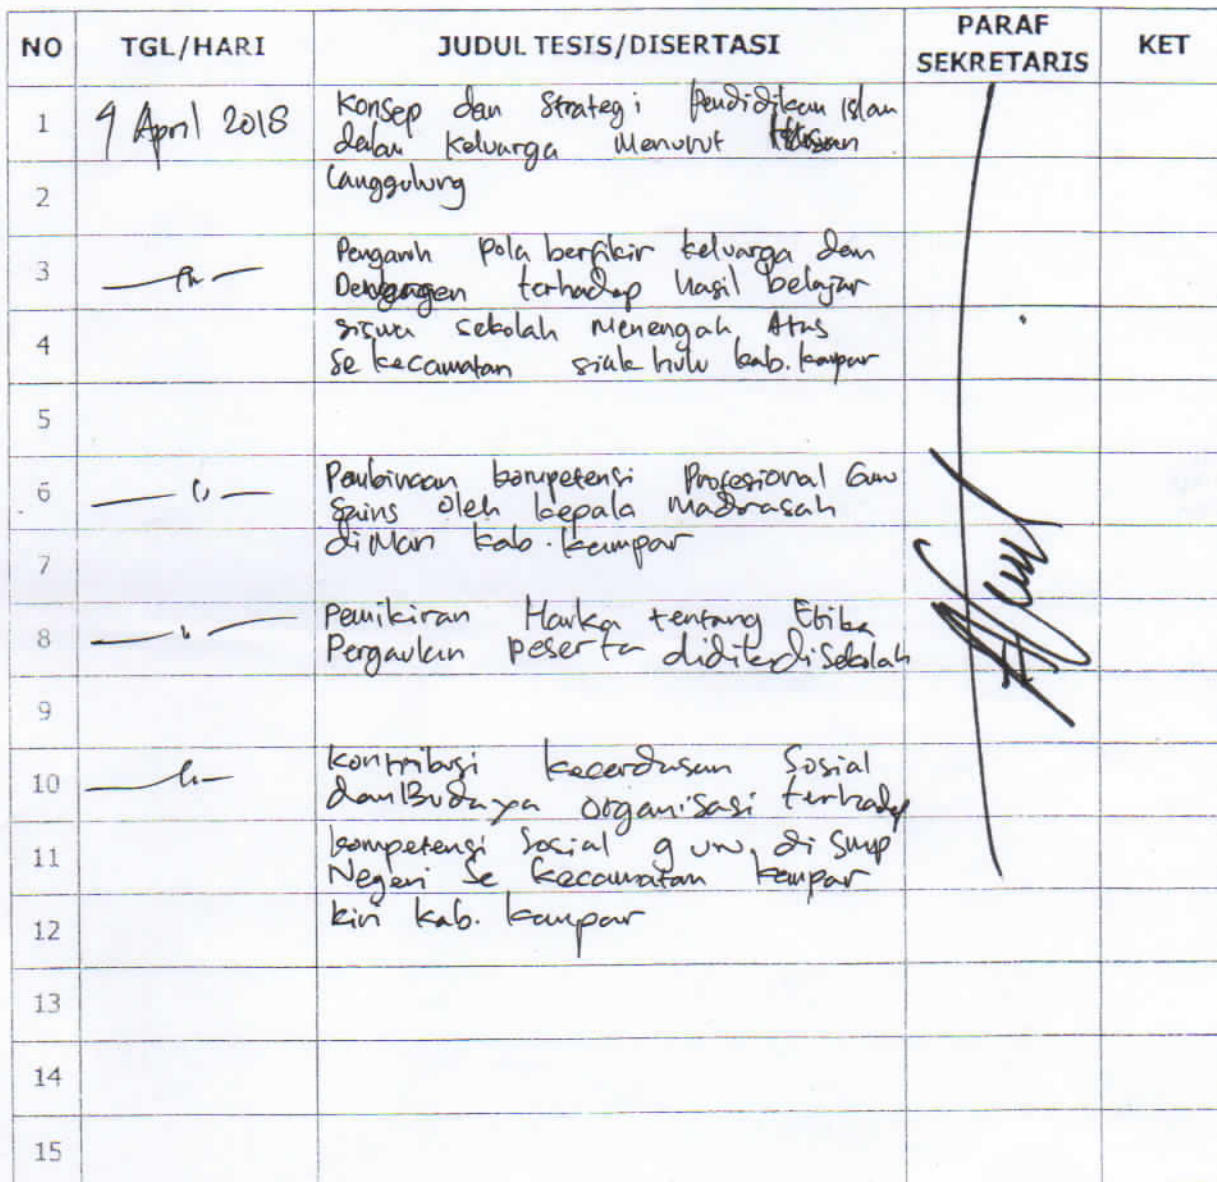 NO TGL/HARI JUDUL TESIS/DISERTASI PARAF SEKRETARIS KET
1 9 April 2018 Konsep dan Strategi Pendidikan Islam
dalam keluarga Menurut Hasan
2 Langgulung
Pengaruh Pola berfikir keluarga dan
3 terhadap hasil belajar
4 siswa sekolah Menengah Atas
Se kecamatan siak hulu kab. kampar
5
6 Pembinaan kompetensi Profesional Guru
Sains oleh kepala madrasah
7 di Man kab. kampar
8 Pemikiran Hamka tentang Etika
Pergaulan peserta didik di Sekolah
9
10 kontribusi kecerdasan Sosial
dan Budaya organisasi terhadap
11 kompetensi Sosial guru di SMP
Negeri Se kecamatan kampar
12 kiri kab. kampar
13
14
15